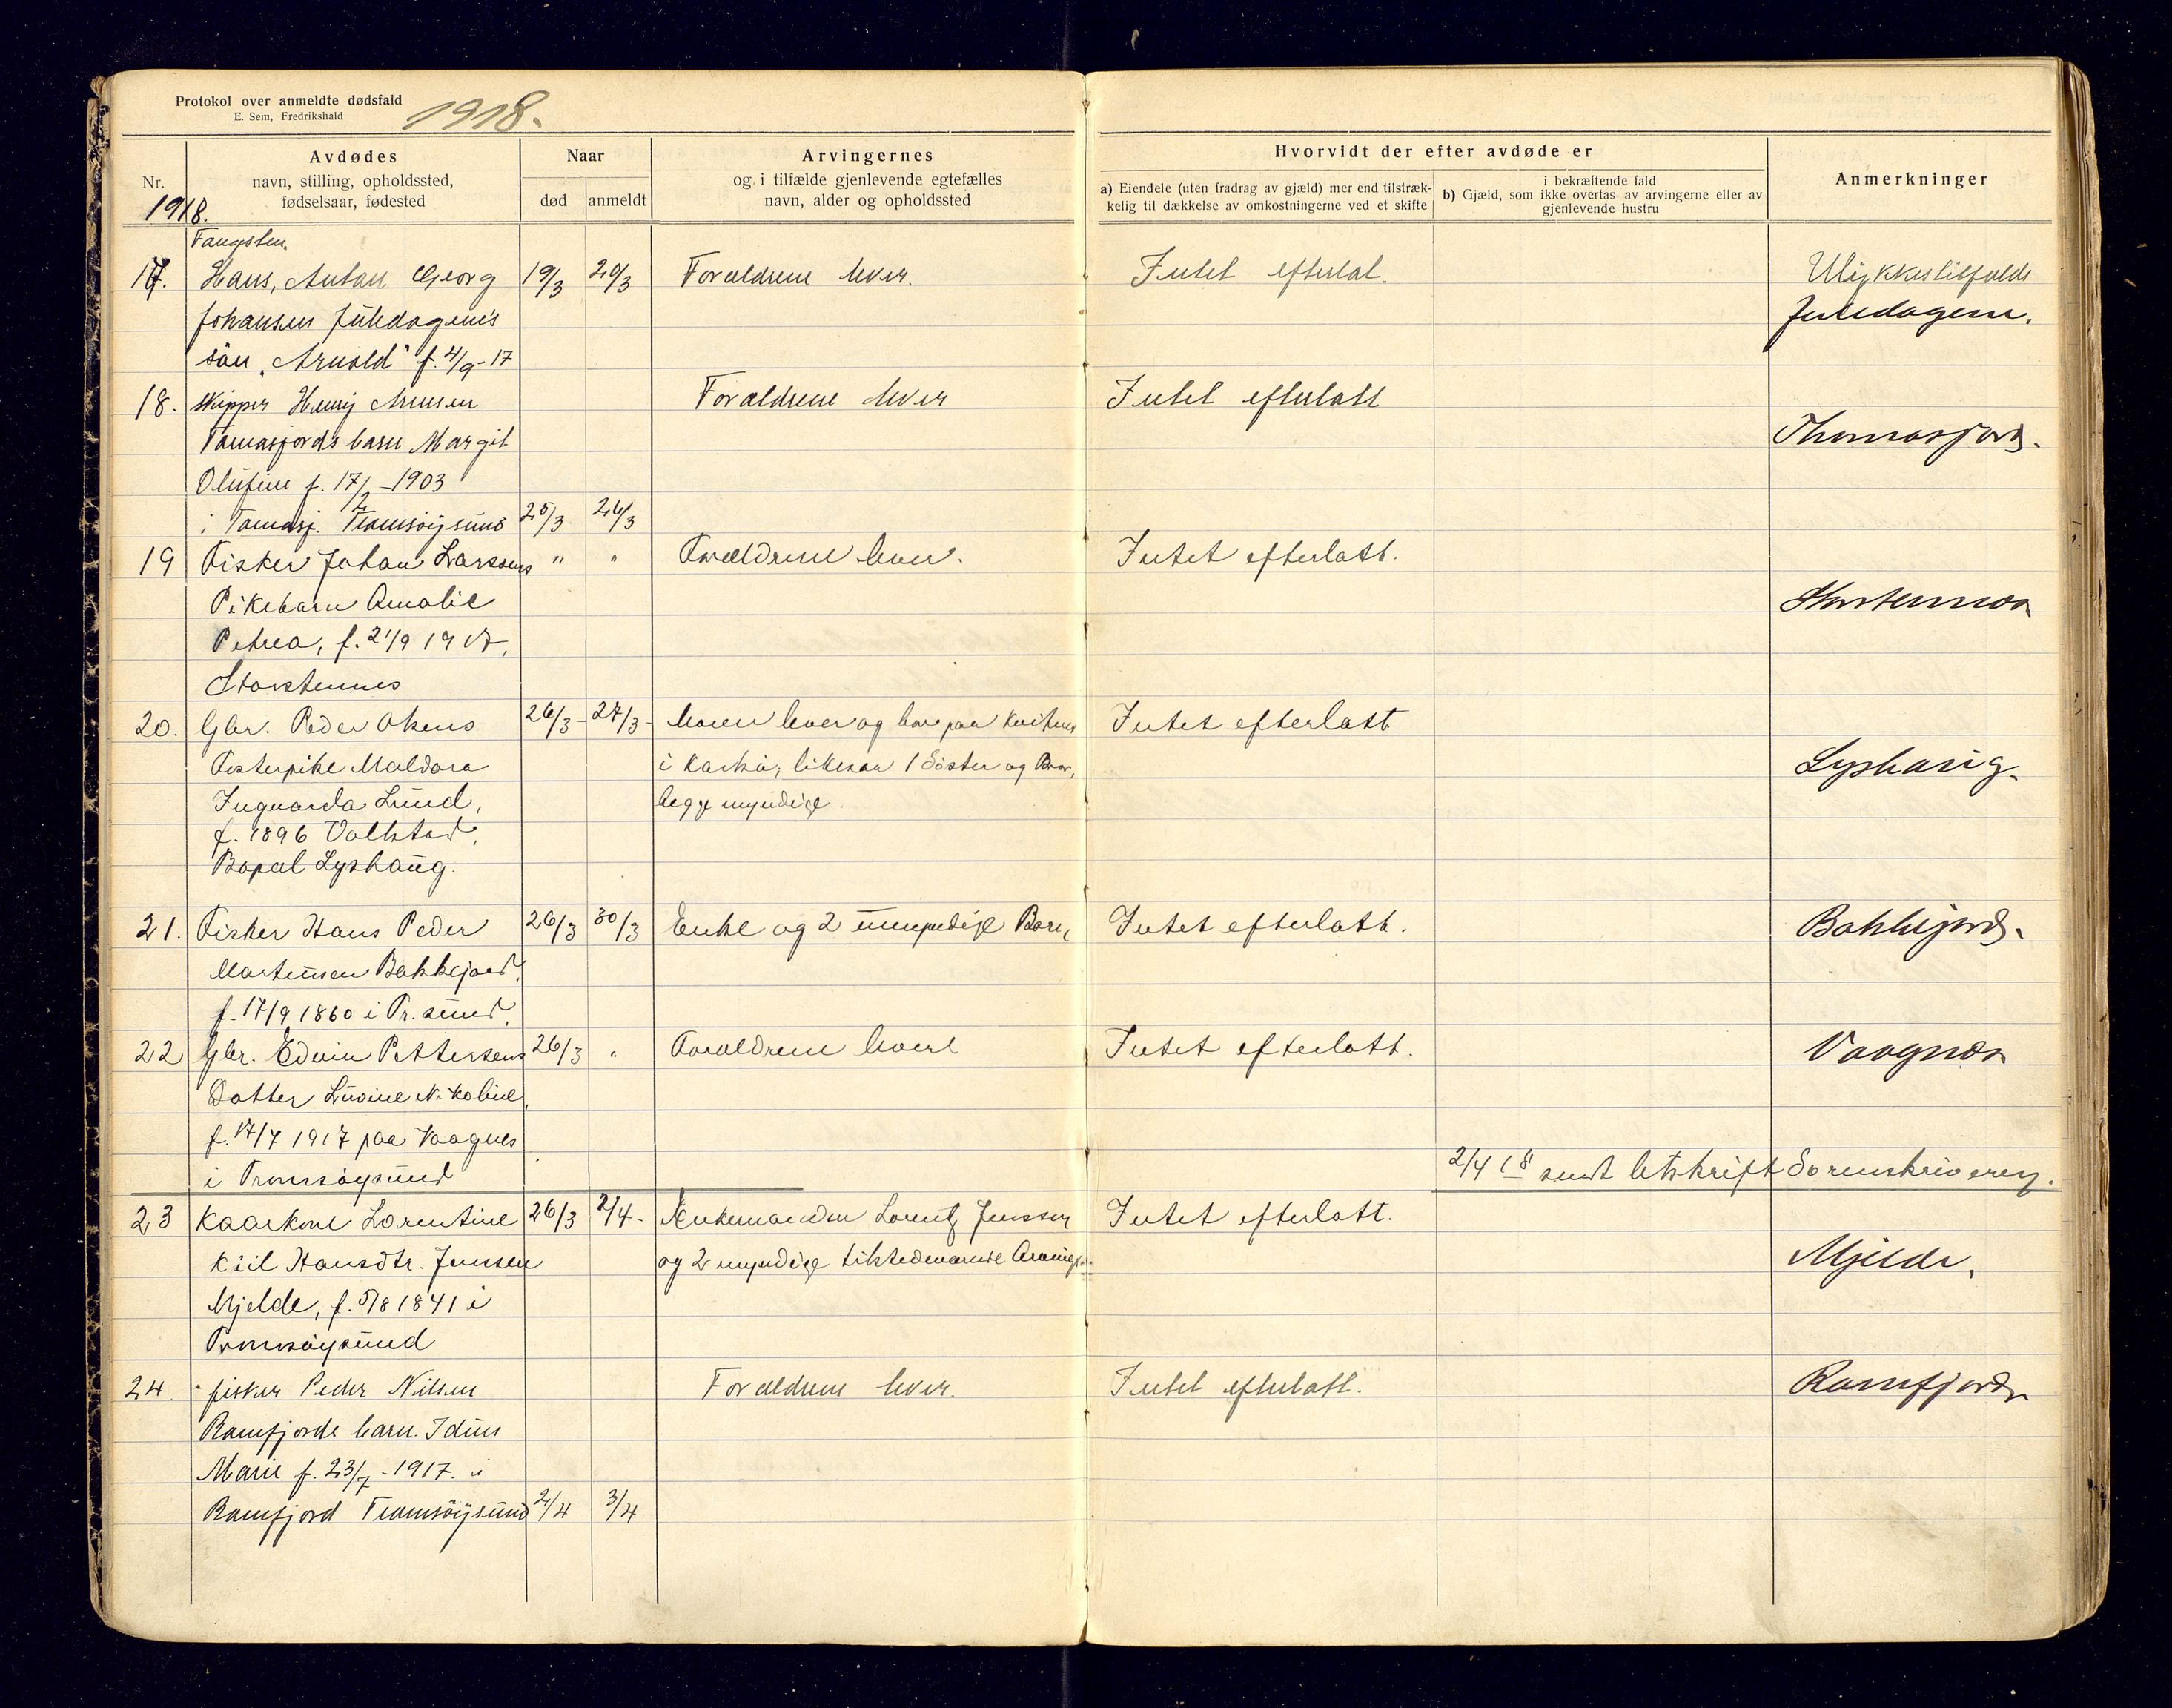 Protokol over anmeldte dødsfald
E. Sem, Fredrikshald
1918.
Nr.
1918.
Avdødes
navn, stilling, opholdssted,
fødselsaar, fødested
Naar
død
anmeldt
Arvingernes
og i tilfælde gjenlevende egtefælles
navn, alder og opholdssted
Hvorvidt der efter avdøde er
a) Eiendele (uten fradrag av gjæld) mer end tilstræk-
kelig til dækkelse av omkostningerne ved et skifte
i bekræftende fald
b) Gjæld, som ikke overtas av arvingerne eller av
gjenlevende hustru
Anmerkninger
Fangstm.
17. Hans, Anton Georg 19/3 20/3 Forældrene lever. Intet efterlat. Ulykkestilfælde
Johansen Juledagenes Juledagene.
sön "Arnold" f. 4/9-17
18. Skipper Henrij Arnesen Forældrene lever Intet efterlatt
Tomasjords barn Margit Thomasjord.
Olufine f. 17/2-1903
i Tomasj. Tromsöysund 25/3 26/3
19 Fisker Johan Larssens " " Forældrene lever. Intet efterlatt.
Pikebarn Amalie
Petrea, f. 21/9 1917, Storstennes
Storstennes
20. Gbr. Peder Okens 26/3- 27/3- Moren lever og bor paa
i likesaa 1 Söster og Bror,
Fosterpike Maldora Lyshaug.
Ingvarda Lund, begge myndige
Intet efterlatt
f. 1896 Valkstad,
Bopæl Lyshaug.
21. Fisker Hans Peder 26/3 30/3 Enke og 2 umyndige Barn, Intet efterlatt. Bakkejord.
Martinsen Bakkejord,
f. 17/9 1860 i Tr.sund,
22 Gbr. Edvin Pettersens 26/3 " Forældrene lever Intet efterlatt. Vaagnes
Datter Lüvine Nikoline,
f. 17/7 1917 paa Vaagnes
i Tromsöysund 2/4 18 sendt utskrift Sorenskriveren.
23 Kaarkone Lorentine 26/3 2/4- Enkemanden Lorentz Jenssen Intet efterlatt.
Kiil Hansdtr. Jenssen og 2 myndige tilstedeværende Arvinger Mjelde.
Mjelde, f. 5/8 1841 i
Tromsöysund
24. fisker Peder Nilsen Forældrene lever. Intet efterlatt. Ramfjordn
Ramfjords barn. Idun
Marie f. 23/7-1917. i
Ramfjord Tromsöysund 2/4 3/4